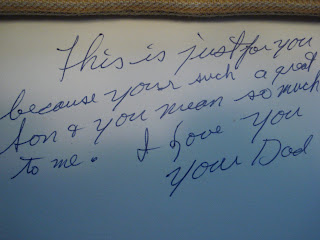 This is just for you
because your such a great
son & you mean so much
to me. I love you
your Dad